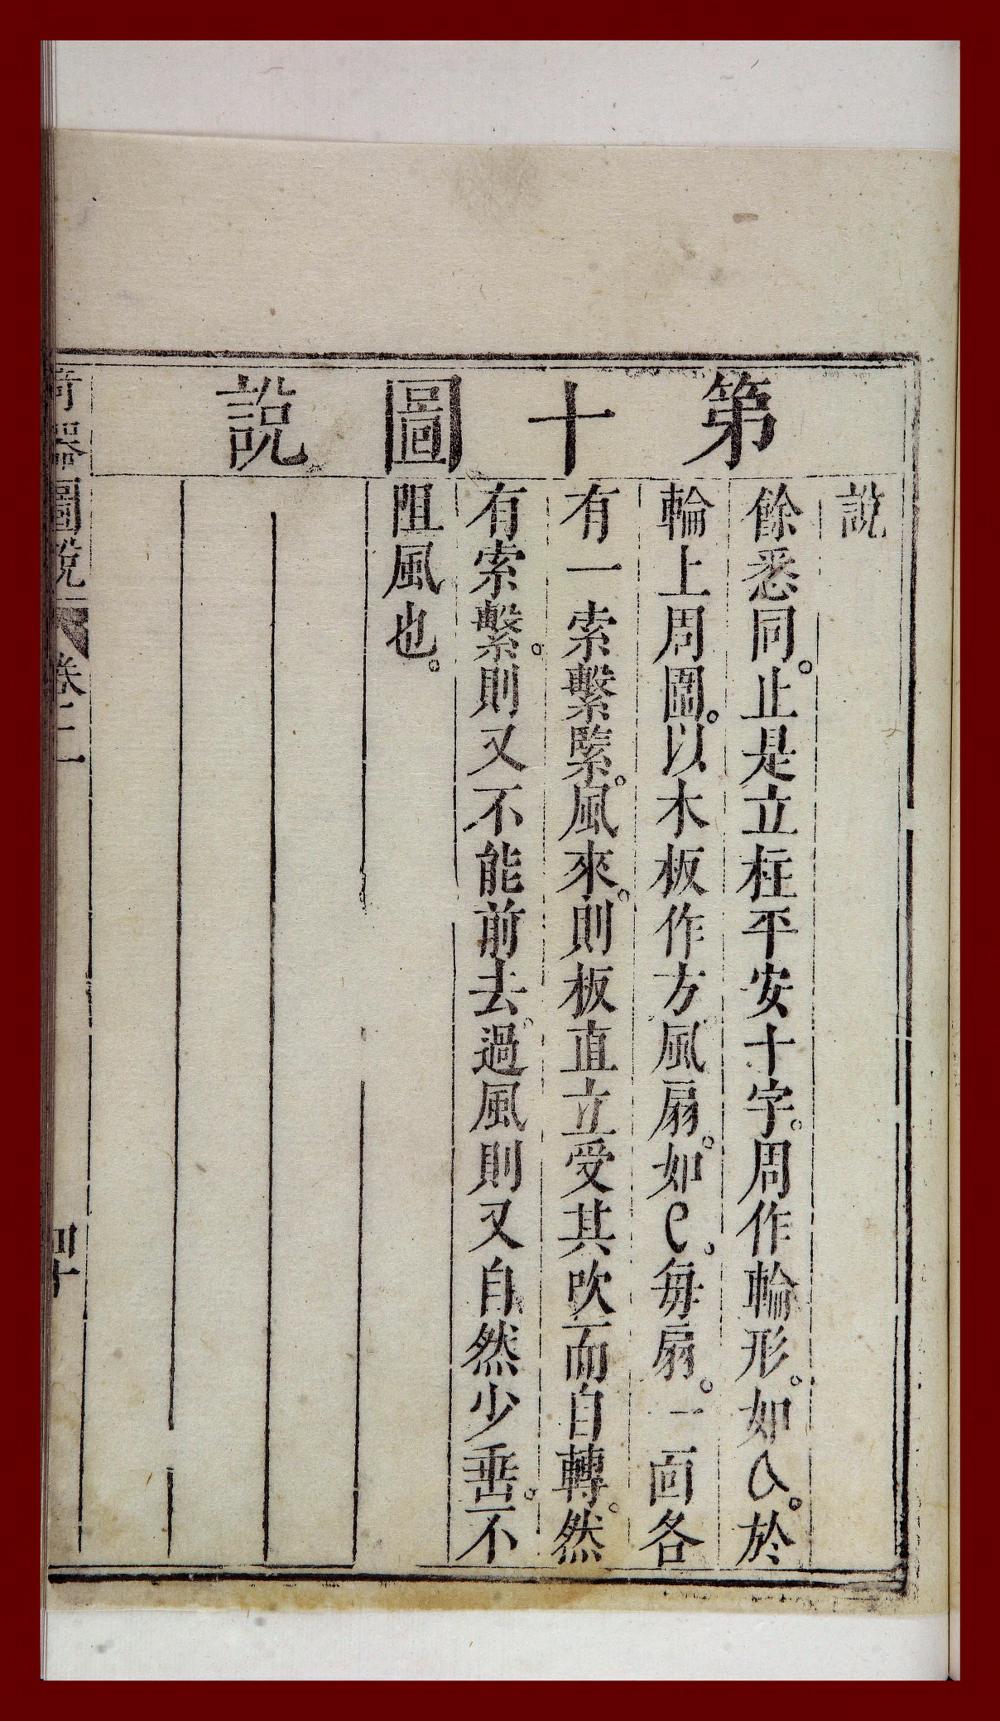 第十圖說
說
餘悉同。止是立柱平安十字。周作輪形。如。於
輪上周圍。以木板作方風扇。如。每扇。一面各
有一索繫緊。風來。則板直立受其吹而自轉。然
有索繫。則又不能前去。過風則又自然少垂。不
阻風也。
奇器圖說
卷二
四十